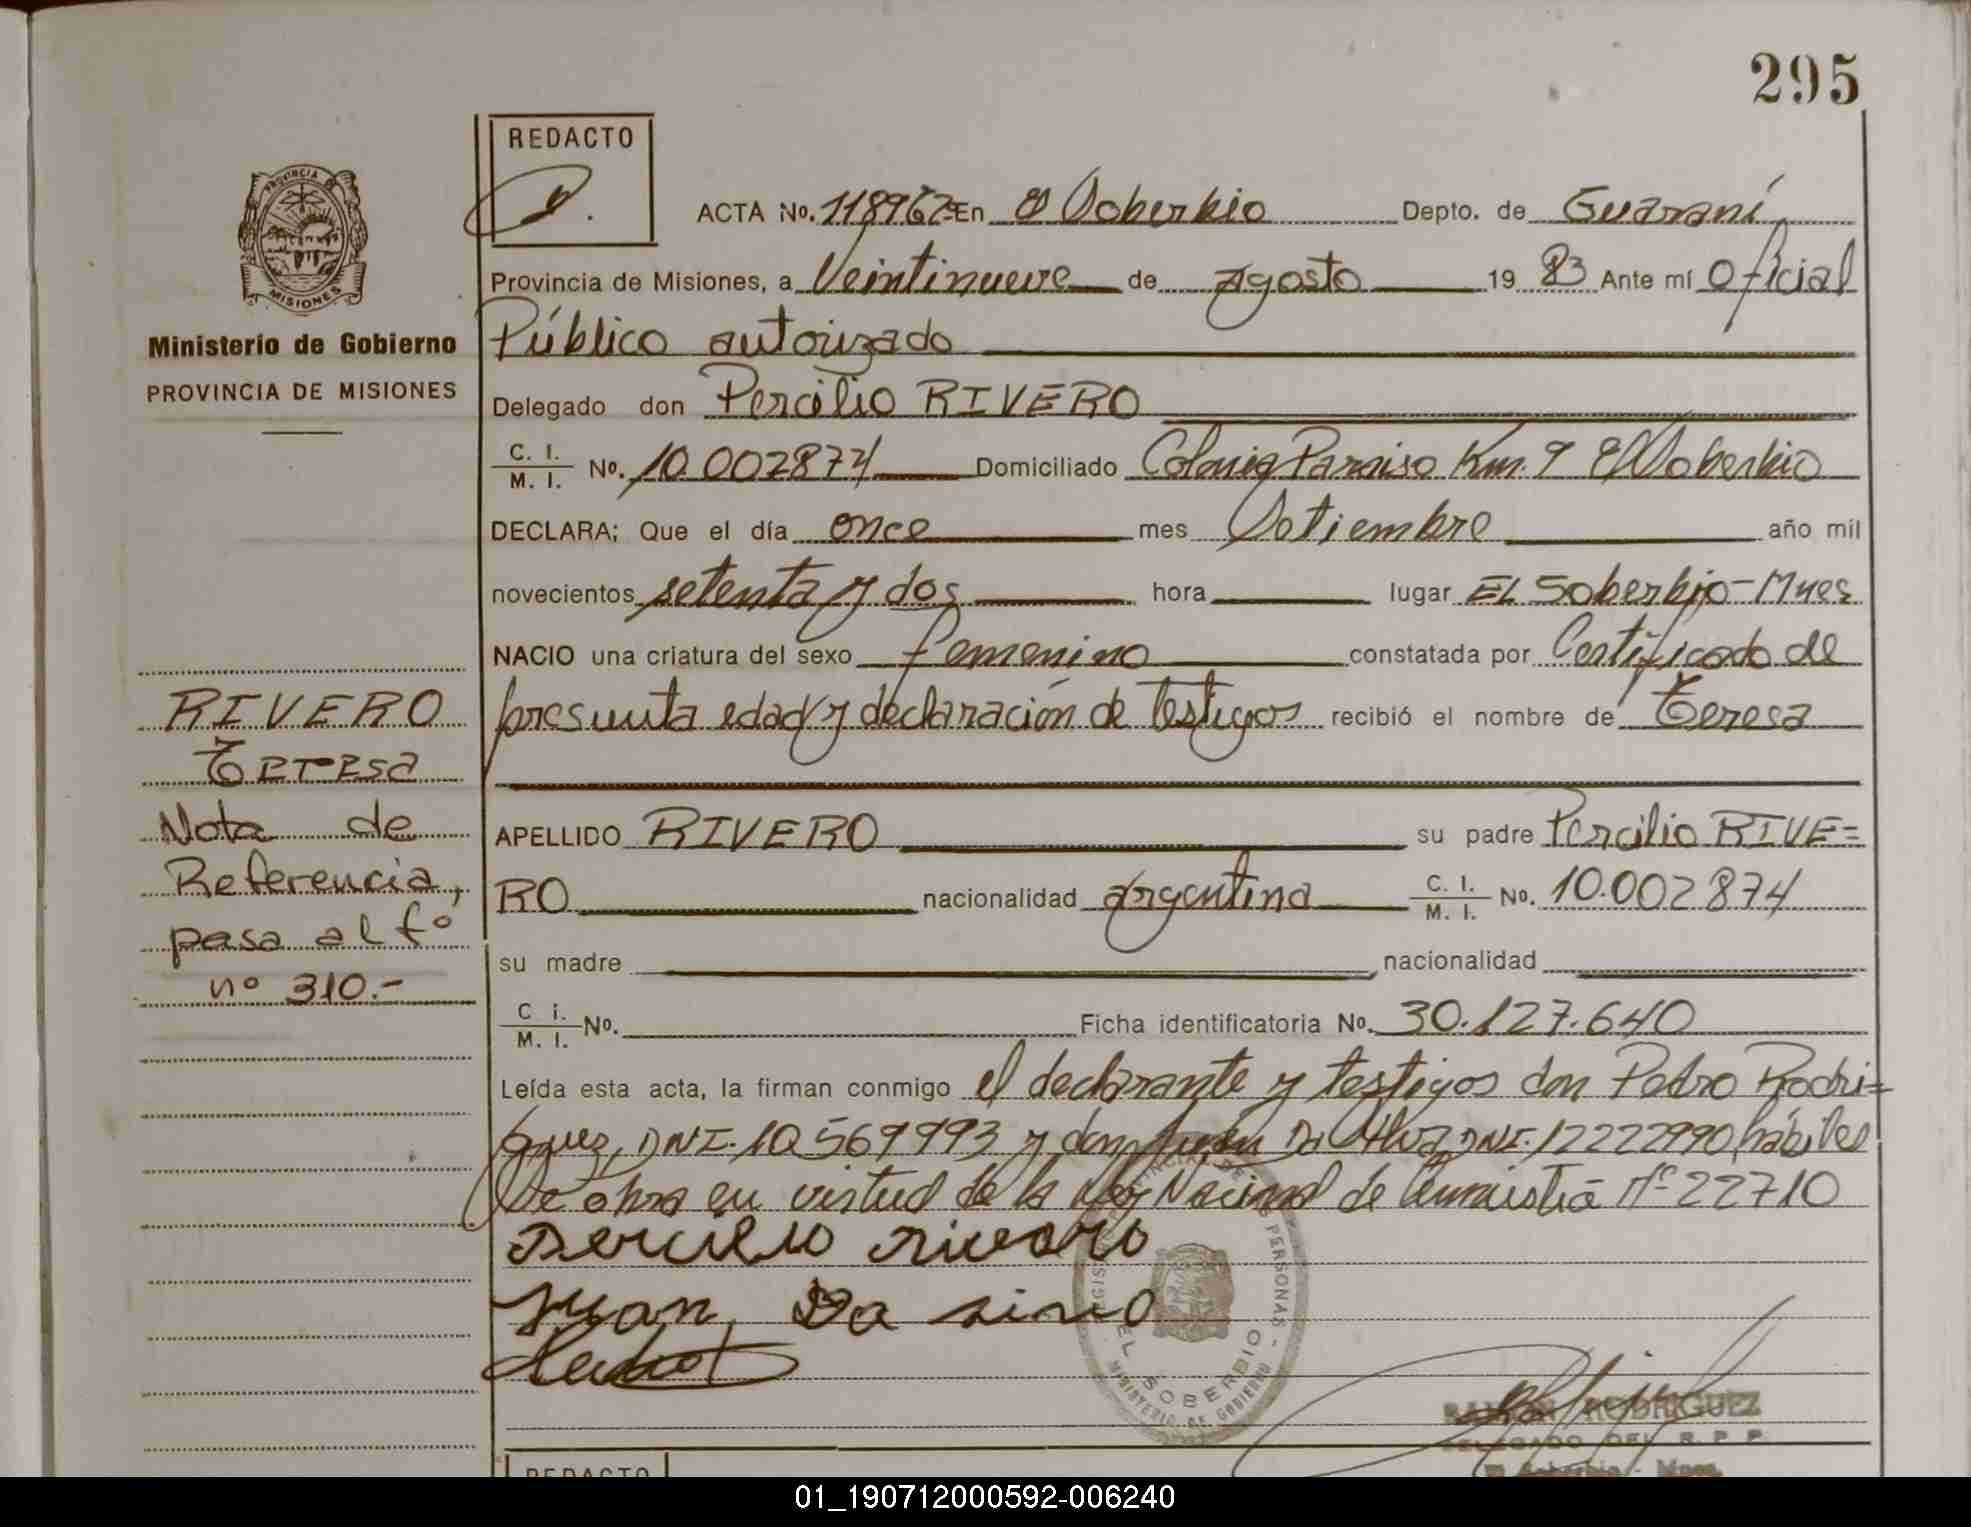 295
REDACTO
PROVINCIA
MISIONES
Ministerio de Gobierno
PROVINCIA DE MISIONES
ACTA No. 118962 - En El Soberbio Depto. de Guaraní
Provincia de Misiones, a Veintinueve de Agosto 19 83 Ante mí Oficial
Público autorizado
Delegado don Percilio RIVERO
C. I. / M. I. No. 10.002874 Domiciliado Colonia Paraiso Km. 9 El Soberbio
DECLARA: Que el día once mes Setiembre año mil
novecientos setenta y dos hora lugar EL Soberbio - Mnes
NACIO una criatura del sexo femenino constatada por Certificado de
presunta edad y declaración de testigos recibió el nombre de Teresa
APELLIDO RIVERO su padre Percilio RIVE=
RO nacionalidad argentina C. I. / M. I. No. 10.002874
su madre nacionalidad
C i. / M. I. No. Ficha identificatoria No. 30.127.640
Leída esta acta, la firman conmigo el declarante y testigos don Pedro Rodri=
guez, DNI. 10.569993 y don Juan Da Silva, DNI. 12222990, hábiles
Se obra en virtud de la Ley Nacional de Amnistía Nº 22710
RIVERO
Teresa
Nota de
Referencia,
pasa al fº
nº 310.-
Percilio rivero
Juan Da silva
EL SOBERBIO
MINISTERIO DE GOBIERNO
PERSONAS
RAMON RODRIGUEZ
DELEGADO DEL R. P. P.
El Soberbio - Mnes.
REDACTO
01_190712000592-006240